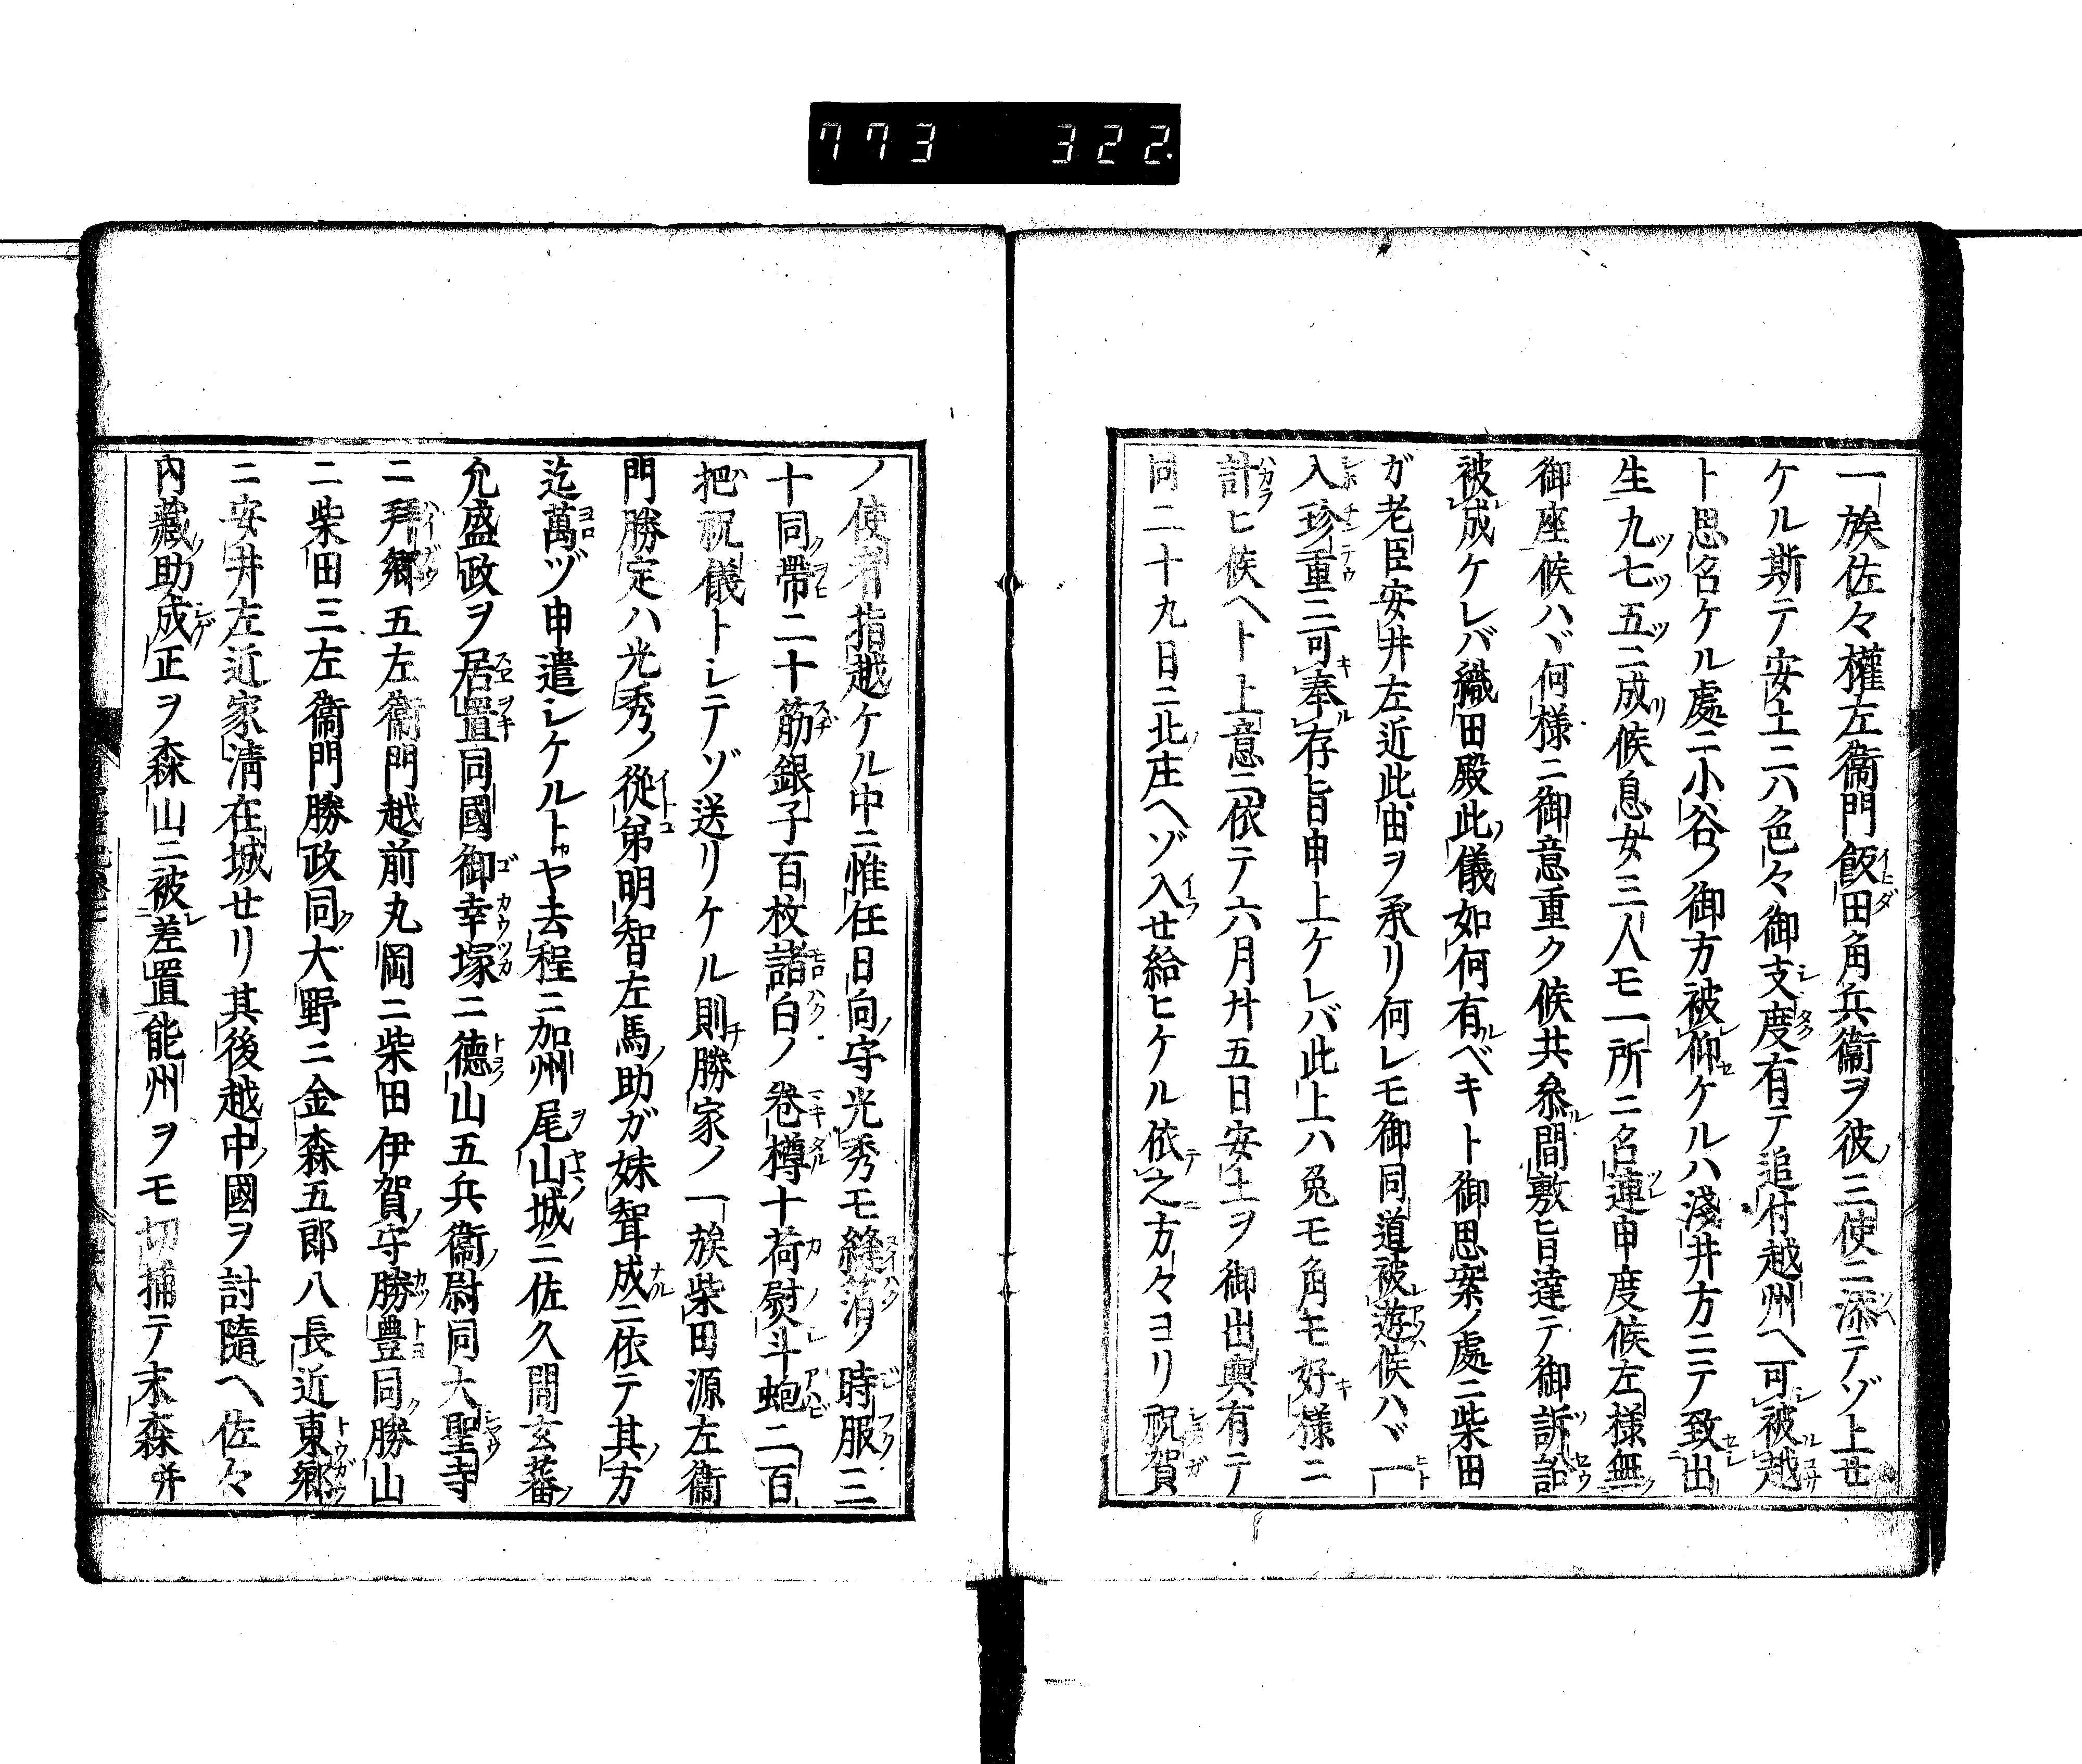 773 322
一族佐々權左衞門飯田角兵衞ヲ彼三使ニ添テゾ上セ
ケル斯テ安土ニハ色々御支度有テ追付越州ヘ可被越
ト思召ケル處ニ小谷ノ御方被仰ケルハ淺井方ニテ致出
生九七五ニ成候息女三人モ一所ニ召連申度候左様無
御座候ハヾ何様ニ御意重ク候共參間敷旨達テ御訴訟
被成ケレバ織田殿此儀如何有ベキト御思案ノ處ニ柴田
ガ老臣安井左近此由ヲ承リ何レモ御同道被遊候ハヾ一
入珍重ニ可奉存旨申上ケレバ此上ハ兔モ角モ好様ニ
計ヒ候ヘト上意ニ依テ六月廾五日安土ヲ御出輿有テ
同二十九日ニ北庄ヘゾ入せ給ヒケル依之方々ヨリ祝賀
ノ使者指越ケル中ニ惟任日向守光秀モ縫箔ノ時服三
十同帶二十筋銀子百枚諸白ノ卷樽十荷熨斗蚫二百
把祝儀トシテゾ送リケル則勝家ノ一族柴田源左衞
門勝定ハ光秀ノ從弟明智左馬助ガ妹聟成ニ依テ其方
迄萬ヅ申遣シケルトヤ去程ニ加州尾山城ニ佐久間玄蕃
允盛政ヲ居置同國御幸塚ニ徳山五兵衞尉同大聖寺
ニ拜郷五左衞門越前丸岡ニ柴田伊賀守勝豊同勝山
ニ柴田三左衞門勝政同大野ニ金森五郎八長近東郷
ニ安井左近家清在城せリ其後越中國ヲ討隨ヘ佐々
内藏助成正ヲ森山ニ被差置能州ヲモ切捕テ末森并